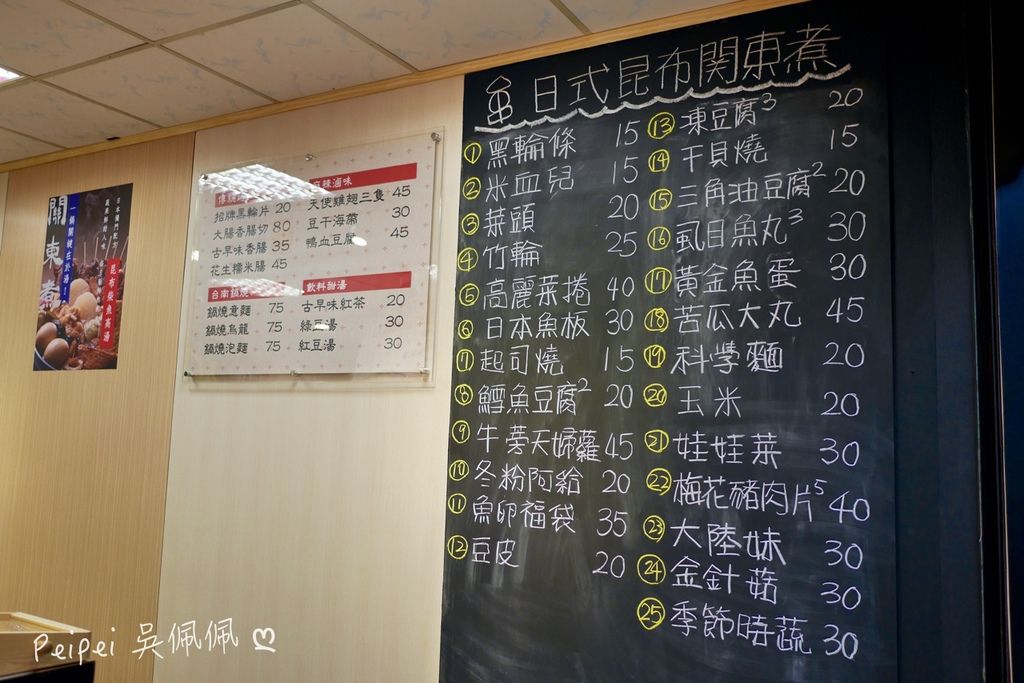 日式昆布関東煮
① 黑輪條 15
② 米血兒 15
③ 菜頭 20
④ 竹輪 25
⑤ 高麗菜捲 40
⑥ 日本魚板 30
⑦ 起司燒 15
⑧ 鱈魚豆腐2 20
⑨ 牛蒡天婦蘿 45
⑩ 冬粉阿給 20
⑪ 魚卵福袋 35
⑫ 豆皮 20
⑬ 凍豆腐3 20
⑭ 干貝燒 15
⑮ 三角油豆腐2 20
⑯ 虱目魚丸3 30
⑰ 黃金魚蛋 30
⑱ 苦瓜大丸 45
⑲ 科學麵 20
⑳ 玉米 20
㉑ 娃娃菜 30
㉒ 梅花豬肉片5 40
㉓ 大陸妹 30
㉔ 金針菇 30
㉕ 季節時蔬 30
招牌黑輪片 20
大腸香腸切 80
古早味香腸 35
花生糯米腸 45
麻辣滷味
天使雞翅三隻 45
豆干海帶 30
鴨血豆腐 45
台南鍋燒
鍋燒意麵 75
鍋燒烏龍 75
鍋燒泡麵 75
飲料甜湯
古早味紅茶 20
綠豆湯 30
紅豆湯 30
關東煮
昆布柴魚高湯
Peipei 吳佩佩